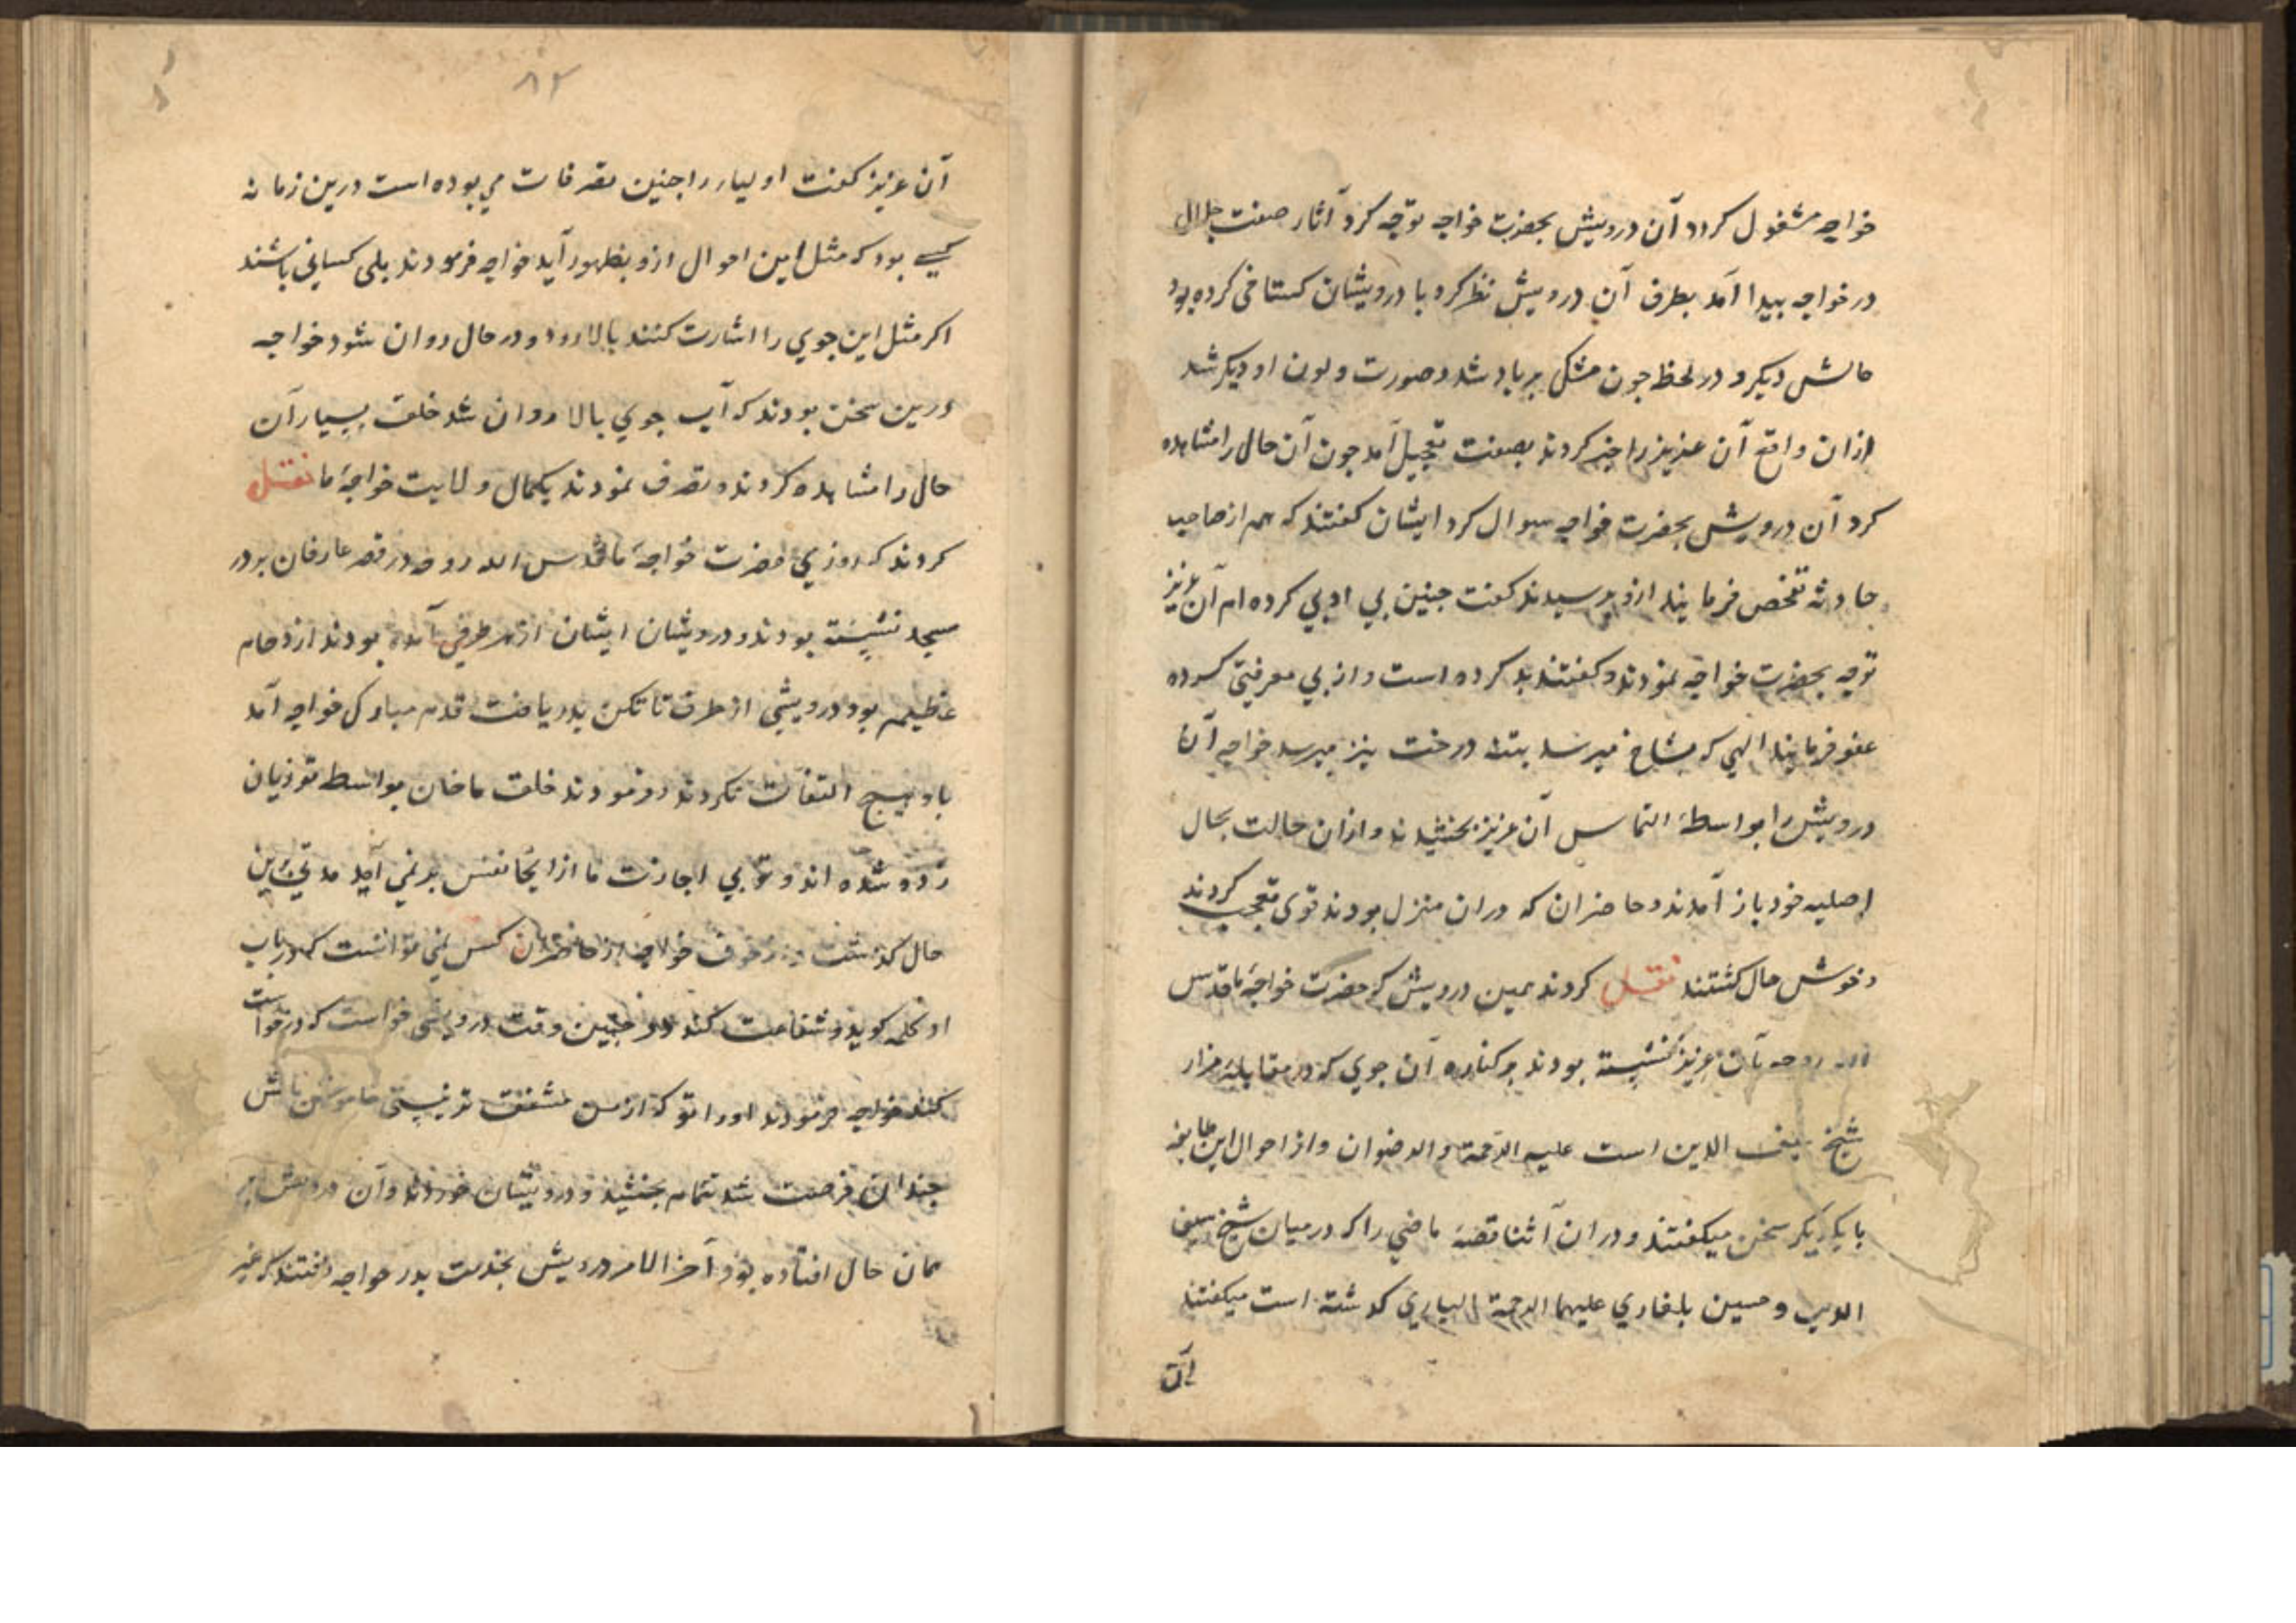 خواجه مشغول کردد آن درویش بحضرت خواجه توجّه کرد آثار صفت جلال
در خواجه پیدا آمد بطرف آن درویش نظر کرد با درویشان کستاخی کرده بود
حالش دیکر و در لحظه چون مشکی پرباد شد و صورت و لون او دیکر شد
ازان واقع آن عزیز را خبر کردند بصفت تعجیل آمد چون آن حال را مشاهده
کرد آن درویش بحضرت خواجه سوال کرد ایشان کفتند که هم از صاحب
حادثه تفحص فرمایند ازو پرسیدند کفت چنین بی ادبی کرده ام آن عزیز
توجه بحضرت خواجه نمودند و کفتند بد کرده است و از بی معرفتی کرده
عفو فرمایند المی که بشاخ میرسد بتنه درخت نیز میرسد خواجه آن
درویش را بواسطهٔ التماس آن عزیز بخشیدند و ازان حالت بحال
اصلیه خود باز آمدند و حاضران که دران منزل بودند قوی تعجب کردند
و خوش حال کشتند نقل کردند همین درویش که حضرت خواجهٔ ما قدس
الله روحه بآن عزیز نشسته بودند بر کناره آن جوی که در مقابلهٔ مزار
شیخ سیف الدین است علیه الرّحمة و الرضوان و از احوال این طایفه
با یکدیکر سخن میکفتند و دران اثنا قصهٔ ماضی را که در میان شیخ سیف
الدین و حسین بلغاری علیهما الرحمة الباری کذشته است میکفتند
آن
۸۲
آن عزیز کفت اولیاء را چنین تصرفات می بوده است درین زمانه
کسی بود که مثل این احوال ازو بظهور آید خواجه فرمودند بلی کسانی باشند
اکر مثل این جوی را اشارت کنند بالا رود و در حال روان شود خواجه
درین سخن بودند که آب جوی بالا روان شد خلق بسیار آن
حال را مشاهده کردند و تصرف نمودند بکمال ولایت خواجهٔ ما نقل
کردند که روزی حضرت خواجهٔ ما قدس الله روحه در قصر عارفان بر در
مسجد نشسته بودند و درویشان ایشان از هر طرفی آمده بودند ازدحام
عظیم بود درویشی از طرف تاتکن بدریافت قدم مبارک خواجه آمد
باو هیچ التفات نکردند و فرمودند خلق ماخان بواسطه تو زیان
زده شده اند و تو بی اجازت ما از اینجا نفس بر نمی آید مدتی برین
حال کذشت و از خوف خواجه از حاضران کس نمی توانست که در باب
او کلمه کوید و شفاعت کند در چنین وقت درویشی خواست که درخواست
کند خواجه فرمودند او را تو که از من مشفق تر نیستی خاموش باش
چندان فرصت شد تمام بخشید و درویشان خوردند و آن درویش بر
همان حال افتاده بود آخر الامر درویش بخدمت پدر خواجه رفتند که غیر